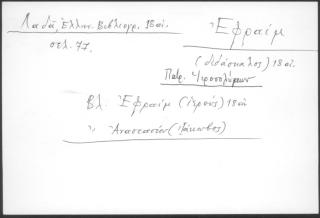 Λαδᾶ, Ἑλλην. Βιβλιογρ. 18 αἰ.
σελ. 77.
Ἐφραίμ
(διδάσκαλος) 18 αἰ.
Πατρ. Ἱεροσολύμων
Βλ. Ἐφραίμ (ἱερεύς) 18 αἰ
" Ἀναστασίου (Ἰάκωβος)